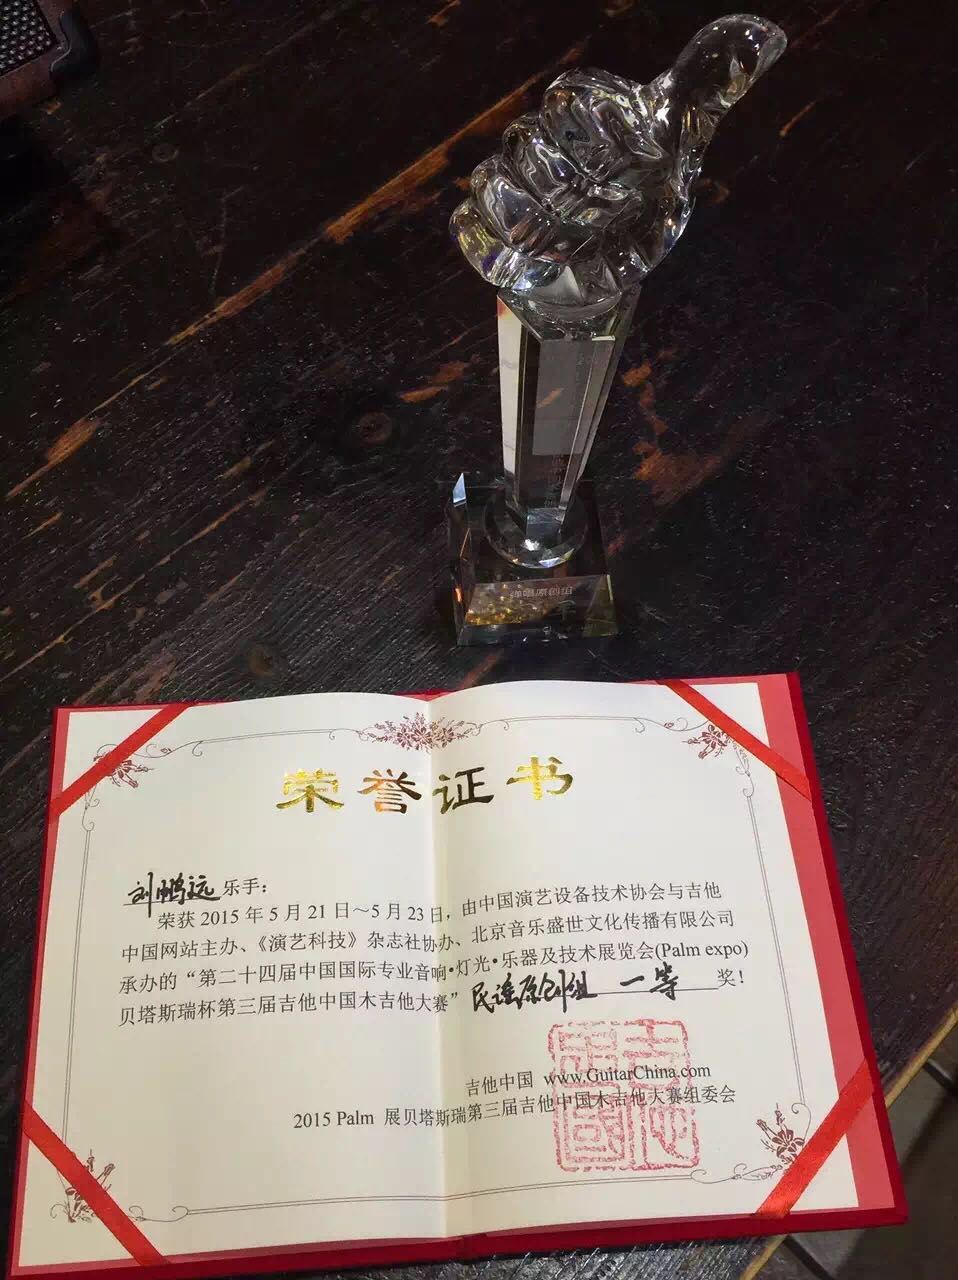 弹唱原创组
荣誉证书
刘鹏远 乐手：
荣获2015年5月21日～5月23日，由中国演艺设备技术协会与吉他
中国网站主办、《演艺科技》杂志社协办、北京音乐盛世文化传播有限公司
承办的“第二十四届中国国际专业音响•灯光•乐器及技术展览会(Palm expo)
贝塔斯瑞杯第三届吉他中国木吉他大赛” 民谣原创组 一等 奖！
吉他中国 www.GuitarChina.com
2015 Palm 展贝塔斯瑞第三届吉他中国木吉他大赛组委会
吉他中國